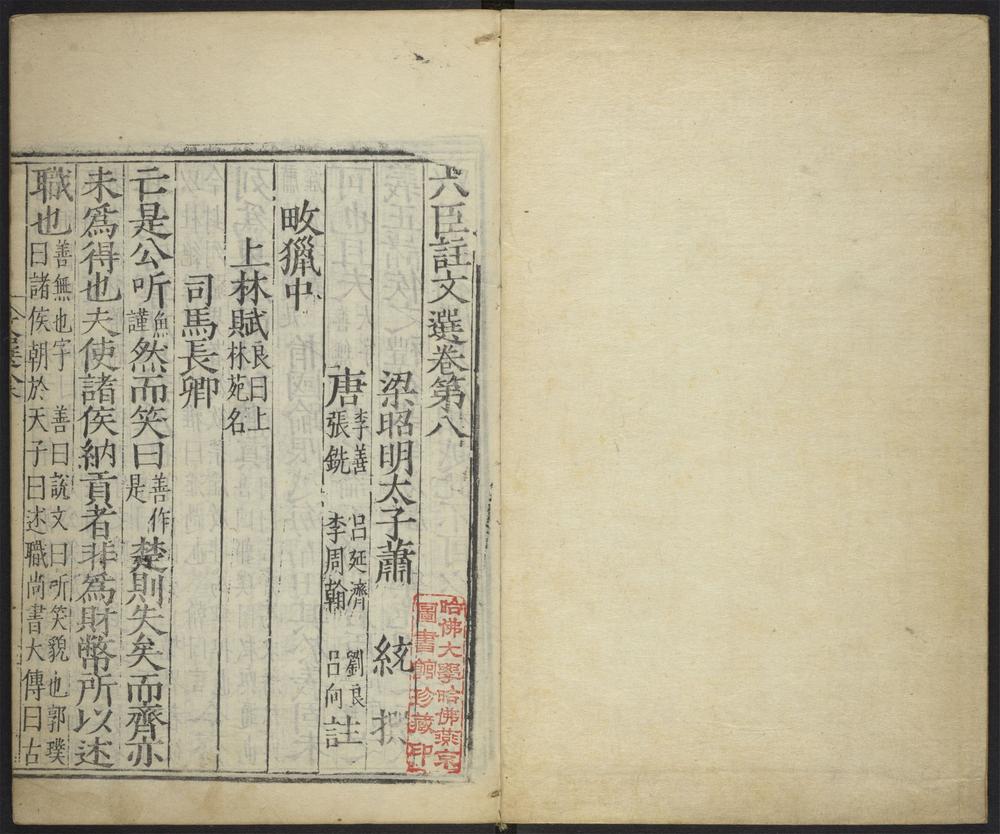 六臣註文選卷第八
梁昭明太子蕭 統 撰
唐李善 呂延濟 劉良
張銑 李周翰 呂向 註
畋獵中
上林賦良曰上
林苑名
司馬長卿
亡是公听魚
謹然而笑曰善作
是楚則失矣而齊亦
未爲得也夫使諸侯納貢者非爲財幣所以述
職也善無也字 善曰說文曰听笑貌也郭璞
曰諸侯朝於天子曰述職尚書大傳曰古
哈佛大學哈佛燕京
圖書館珍藏印